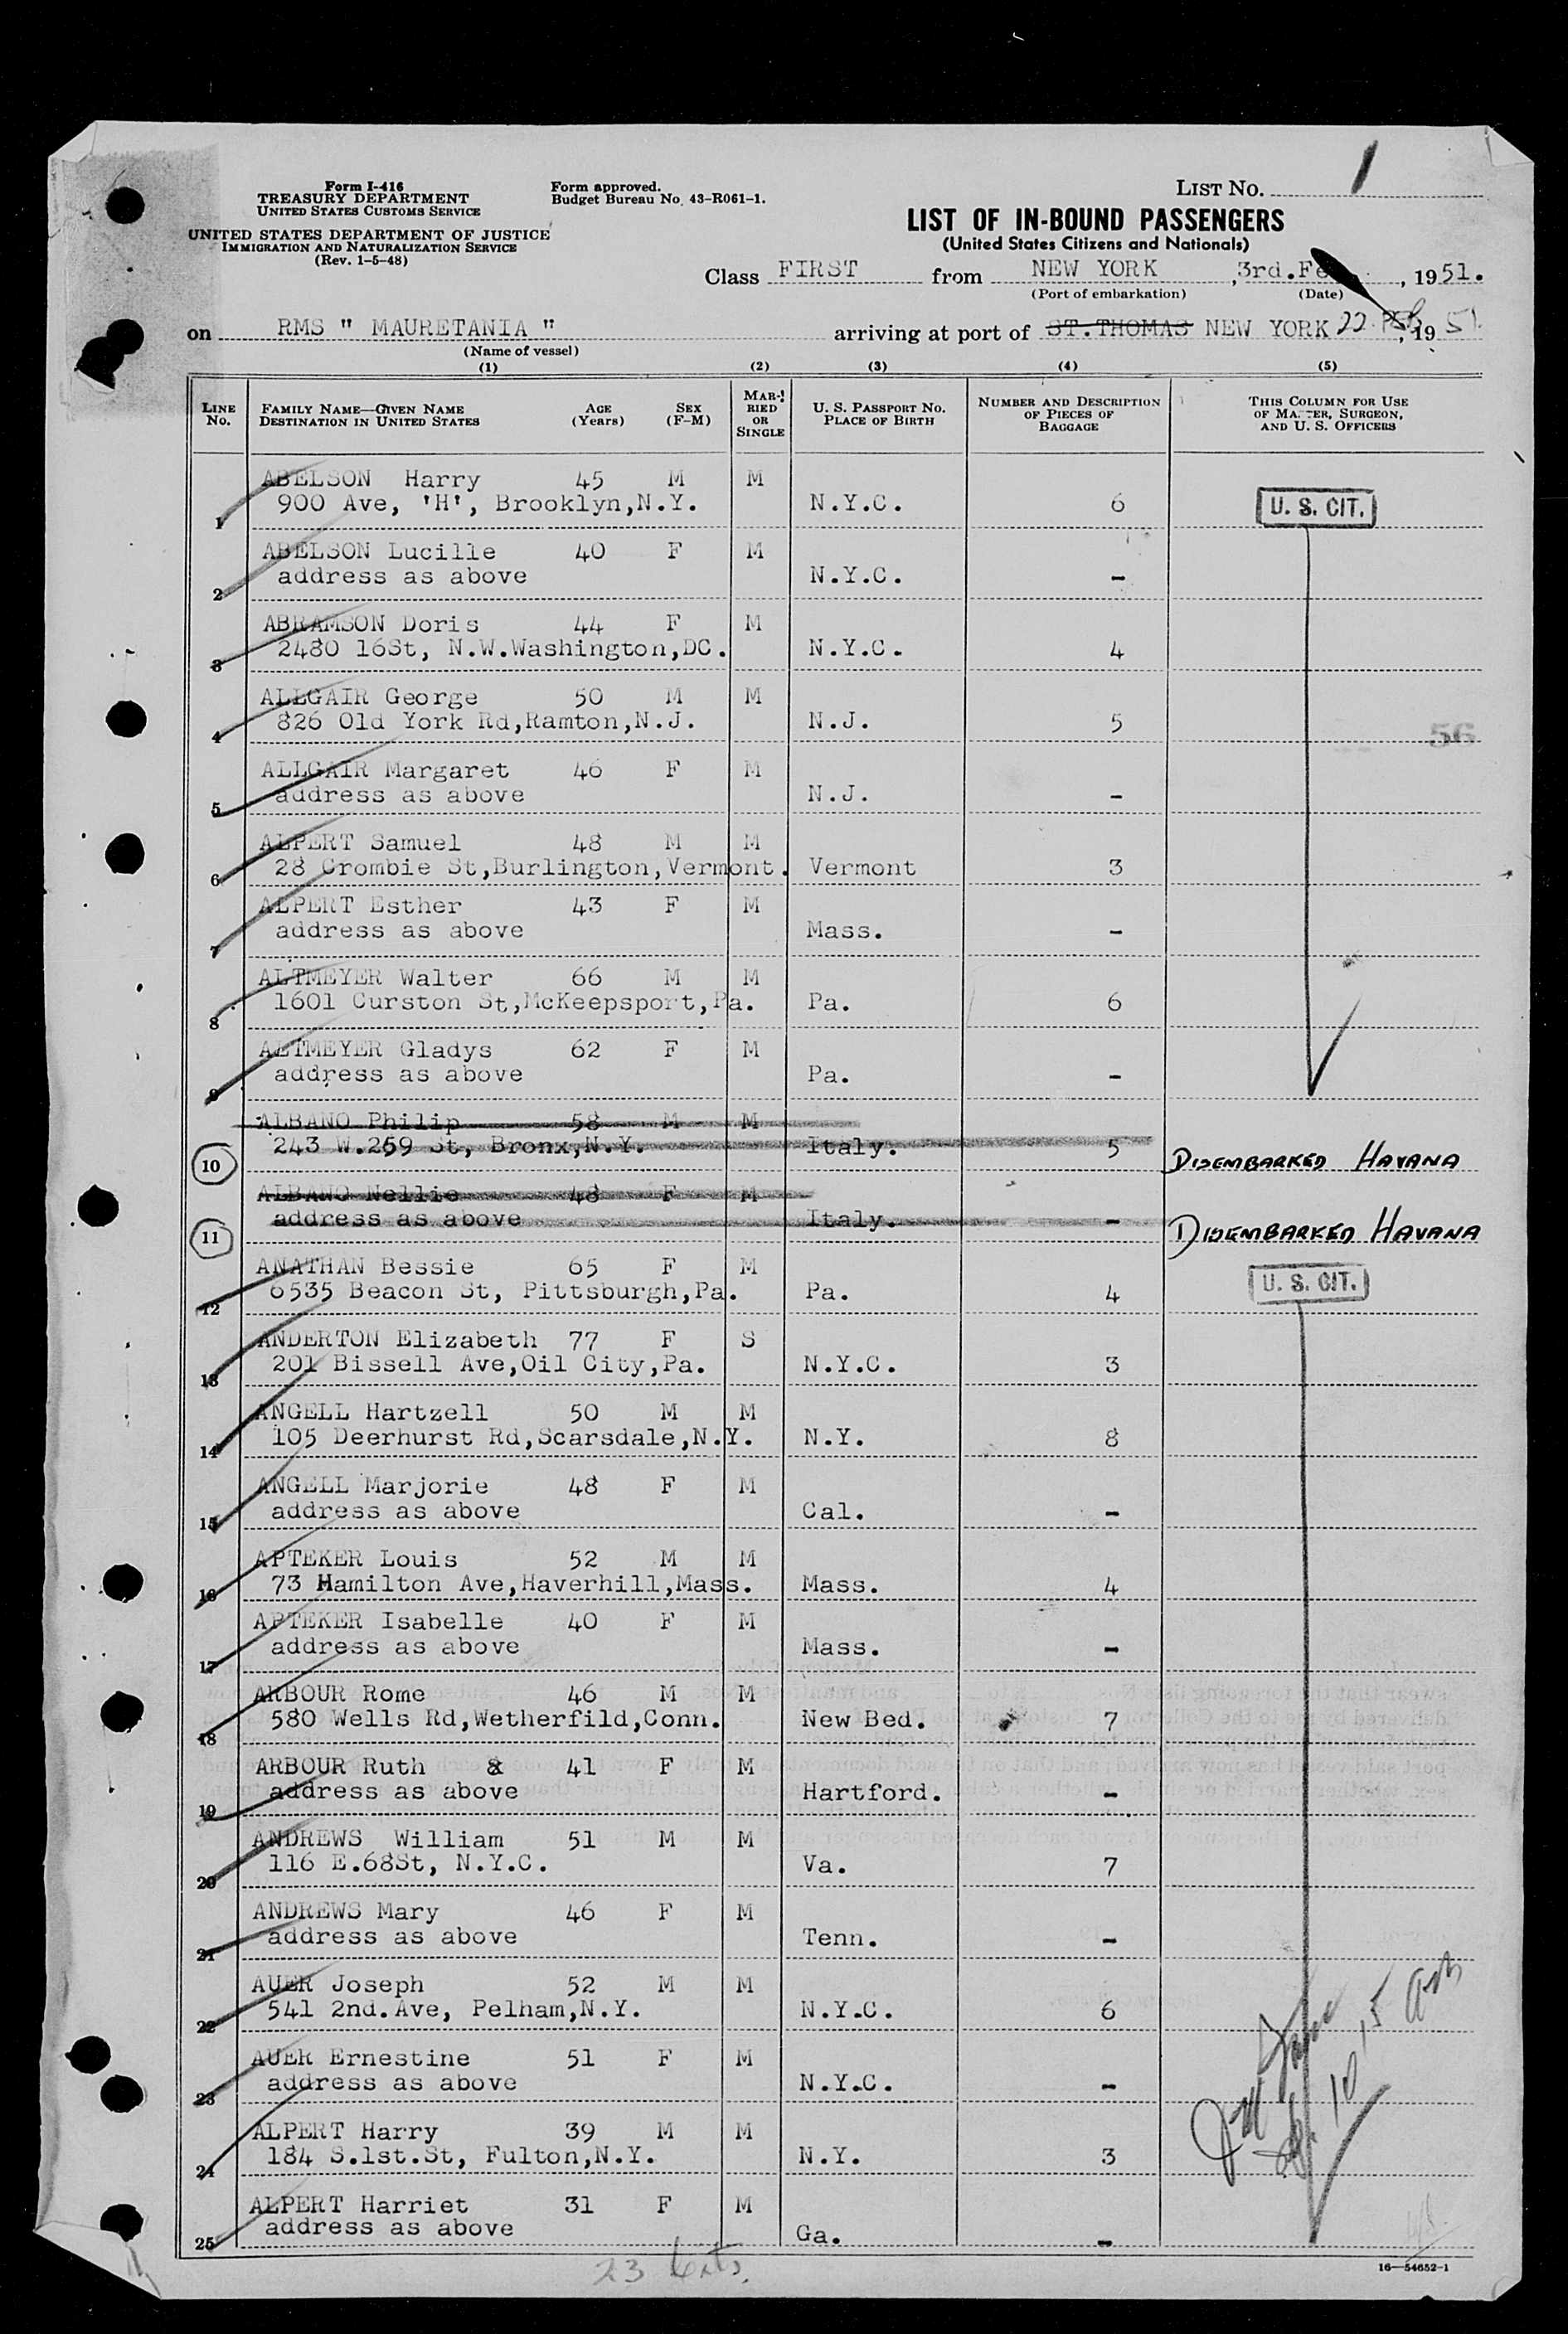 Form I-416
TREASURY DEPARTMENT
UNITED STATES CUSTOMS SERVICE
UNITED STATES DEPARTMENT OF JUSTICE
IMMIGRATION AND NATURALIZATION SERVICE
(Rev. 1-5-48)
Form approved.
Budget Bureau No. 43-R061-1.
LIST NO. 1
LIST OF IN-BOUND PASSENGERS
(United States Citizens and Nationals)
Class FIRST from NEW YORK, 3rd.Fe , 1951.
(Port of embarkation) (Date)
on RMS " MAURETANIA " arriving at port of ST.THOMAS NEW YORK 22 Feb, 1951
(Name of vessel)
(1) (2) (3) (4) (5)
LINE No. FAMILY NAME—GIVEN NAME DESTINATION IN UNITED STATES AGE (Years) SEX (F-M) MARRIED OR SINGLE U. S. PASSPORT NO. PLACE OF BIRTH NUMBER AND DESCRIPTION OF PIECES OF BAGGAGE THIS COLUMN FOR USE OF MASTER, SURGEON, AND U. S. OFFICERS
ABELSON Harry 45 M M
1 900 Ave, 'H', Brooklyn,N.Y. N.Y.C. 6 U. S. CIT.
ABELSON Lucille 40 F M
2 address as above N.Y.C. -
ABRAMSON Doris 44 F M
3 2480 16St, N.W.Washington,DC. N.Y.C. 4
ALLGAIR George 50 M M
4 826 Old York Rd,Ramton,N.J. N.J. 5 56
ALLGAIR Margaret 46 F M
5 address as above N.J. -
ALPERT Samuel 48 M M
6 28 Crombie St,Burlington,Vermont. Vermont 3
ALPERT Esther 43 F M
7 address as above Mass. -
ALTMEYER Walter 66 M M
8 1601 Curston St,McKeepsport,Pa. Pa. 6
ALTMEYER Gladys 62 F M
9 address as above Pa. -
ALBANO Philip 58 M M
10 243 W.259 St, Bronx,N.Y. Italy. 5 DISEMBARKED HAVANA
ALBANO Nellie 48 F M
11 address as above Italy. - DISEMBARKED HAVANA
ANATHAN Bessie 65 F M
12 6535 Beacon St, Pittsburgh,Pa. Pa. 4 U. S. CIT.
ANDERTON Elizabeth 77 F S
13 201 Bissell Ave,Oil City,Pa. N.Y.C. 3
ANGELL Hartzell 50 M M
14 105 Deerhurst Rd,Scarsdale,N.Y. N.Y. 8
ANGELL Marjorie 48 F M
15 address as above Cal. -
APTEKER Louis 52 M M
16 73 Hamilton Ave,Haverhill,Mass. Mass. 4
APTEKER Isabelle 40 F M
17 address as above Mass. -
ARBOUR Rome 46 M M
18 580 Wells Rd,Wetherfild,Conn. New Bed. 7
ARBOUR Ruth & 41 F M
19 address as above Hartford. -
ANDREWS William 51 M M
20 116 E.68St, N.Y.C. Va. 7
ANDREWS Mary 46 F M
21 address as above Tenn. -
AUER Joseph 52 M M
22 541 2nd.Ave, Pelham,N.Y. N.Y.C. 6
AUER Ernestine 51 F M
23 address as above N.Y.C. -
ALPERT Harry 39 M M
24 184 S.1st.St, Fulton,N.Y. N.Y. 3
ALPERT Harriet 31 F M
25 address as above Ga. -
23
16—54652-1